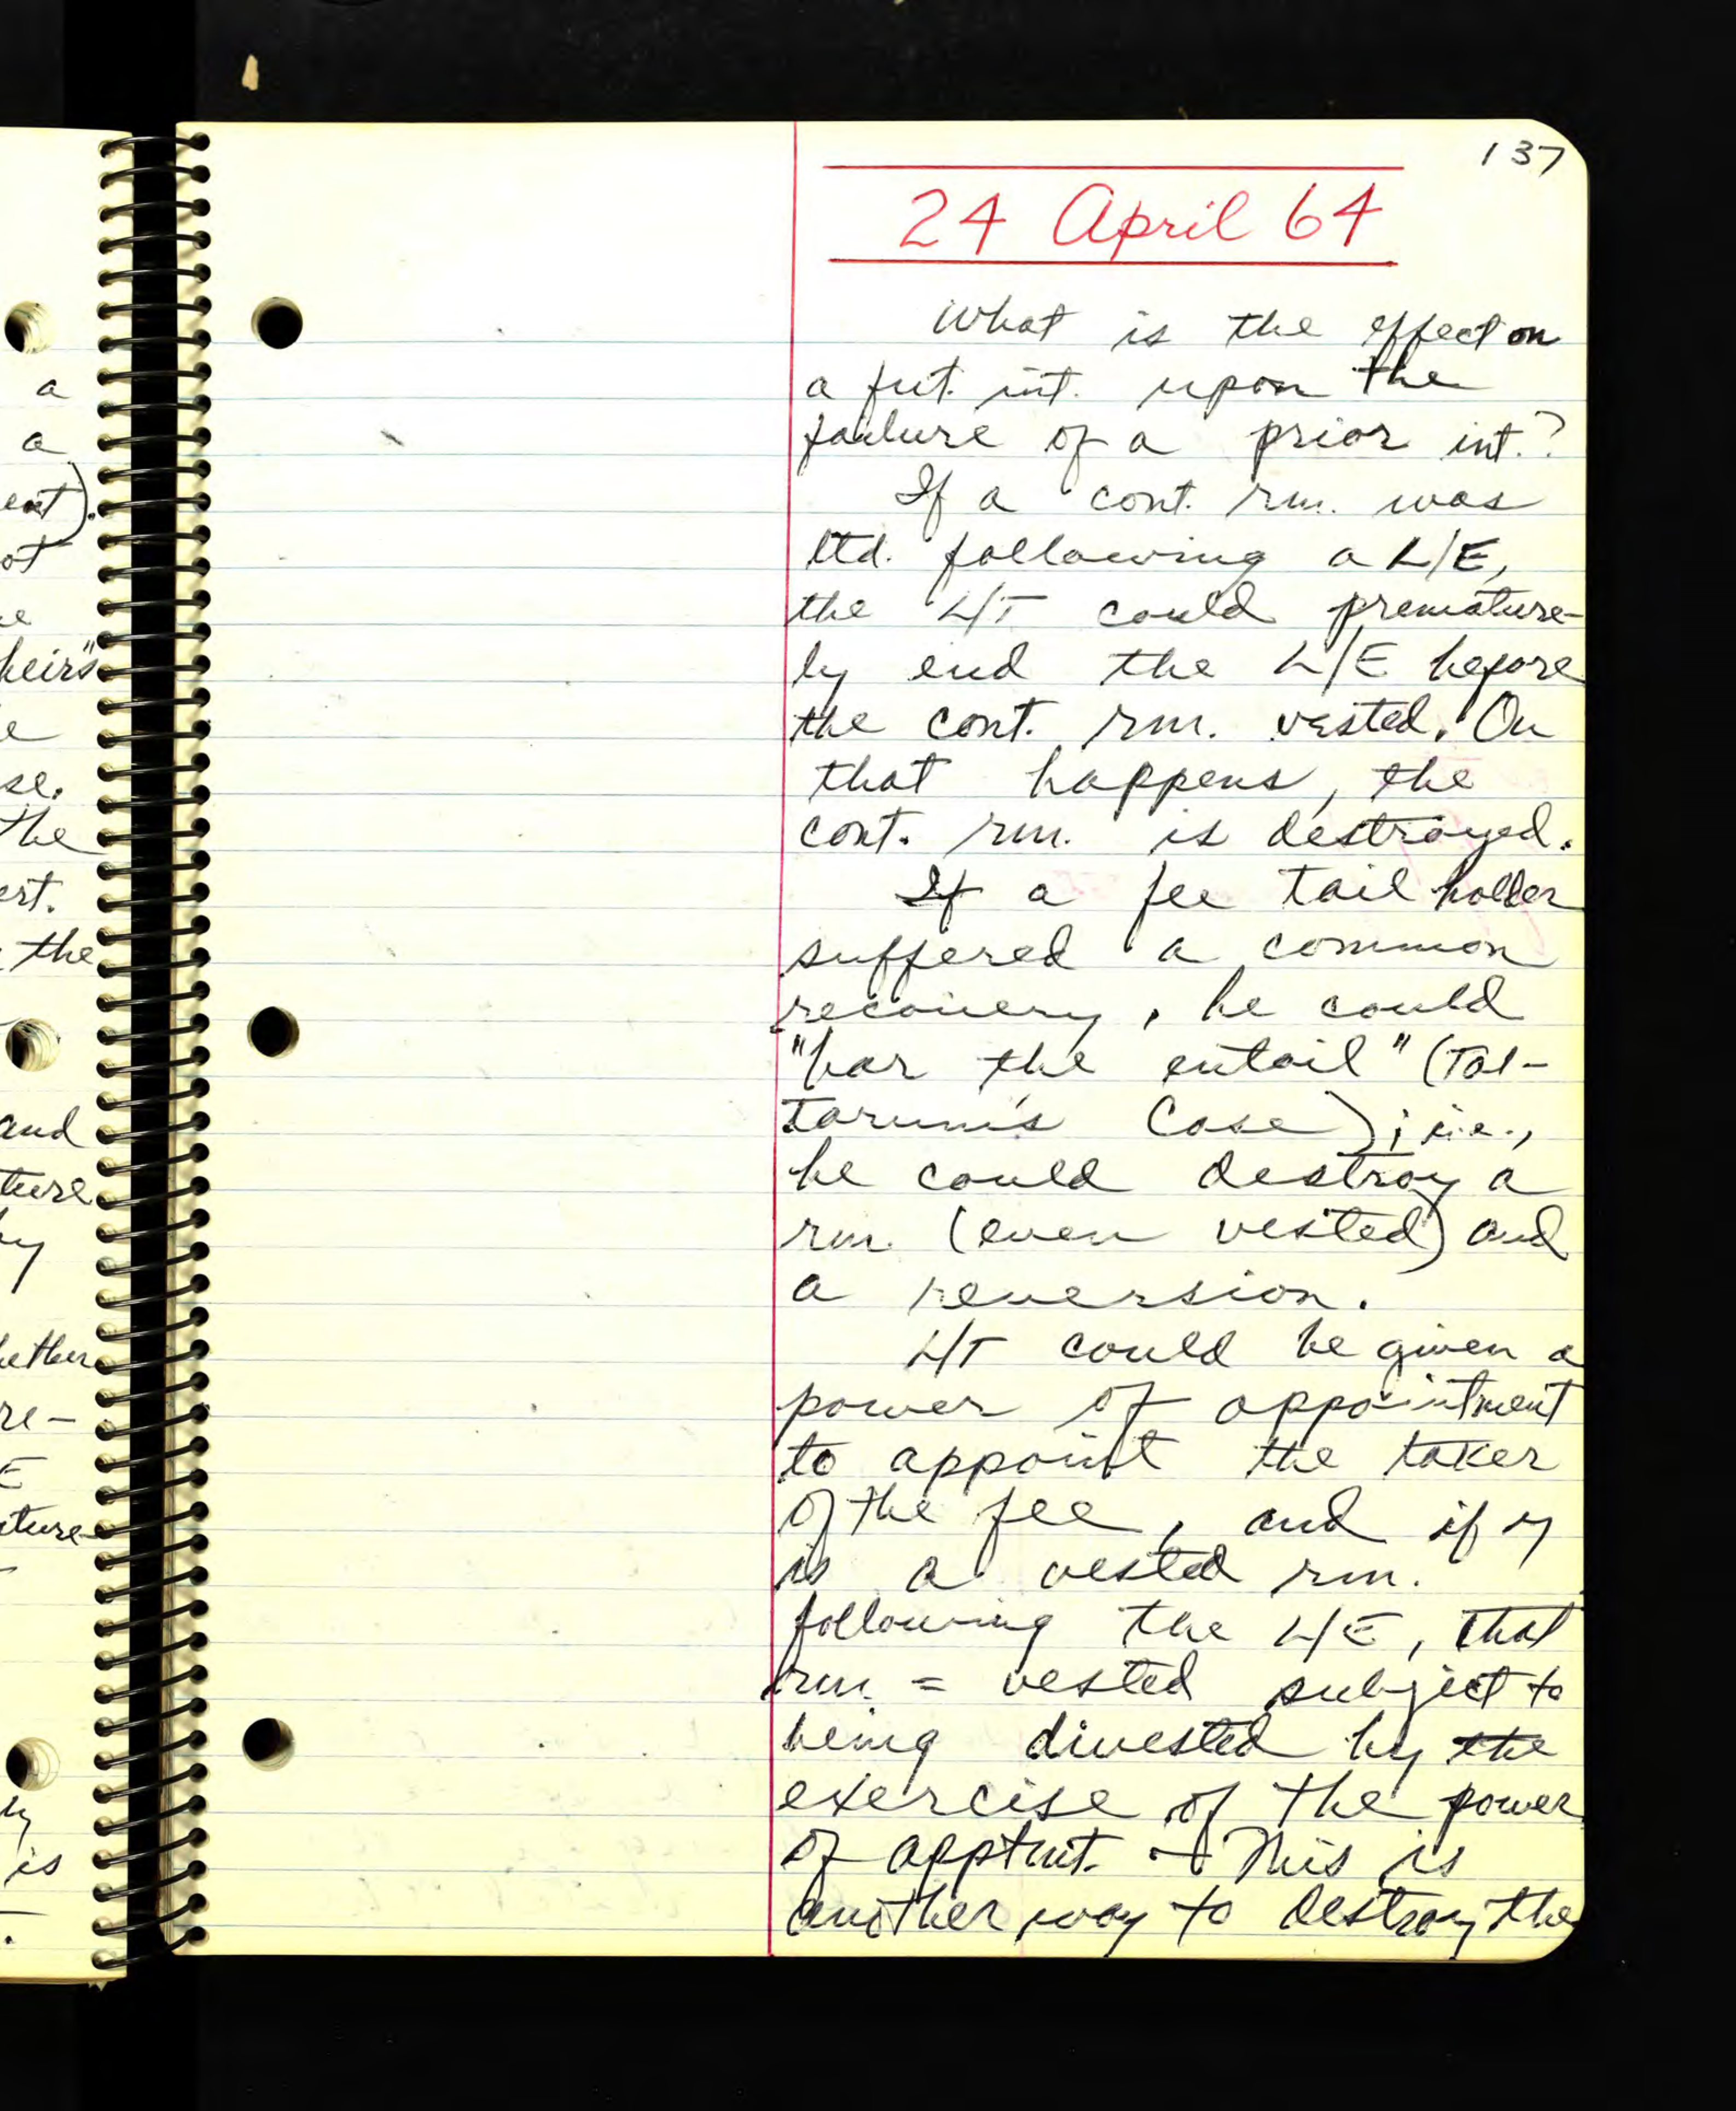 a
a
ent).
ot
e
heirs"
e
se.
the
est.
the
and
ture
by
hether
re-
E
ature
ly
is
137
24 April 64
What is the effect on
a fut. int. upon the
failure of a prior int.?
If a cont. rm. was
ltd. following a L/E,
the L/T could premature-
ly end the L/E before
the cont. rm. vested. On
that happens, the
cont. rm. is destroyed.
If a fee tail holder
suffered a common
recovery, he could
"bar the entail" (Tal-
tarum's Case); i.e.,
he could destroy a
rm. (even vested) and
a reversion.
L/T could be given a
power of appointment
to appoint the taker
of the fee, and if
is a vested rm.
following the L/E, that
rm. = vested subject to
being divested by the
exercise of the power
of apptmt. This is
another way to destroy the